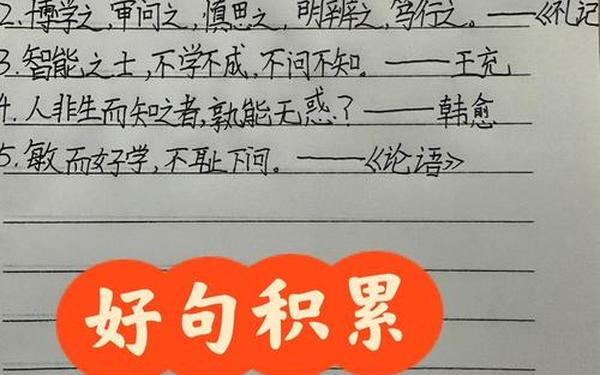 2.博学之,审问之,慎思之,明辨之,笃行之。——《礼记
3.智能之士,不学不成,不问不知。——王充
4.人非生而知之者,孰能无惑?——韩愈
5.敏而好学,不耻下问。——《论语》
好句积累